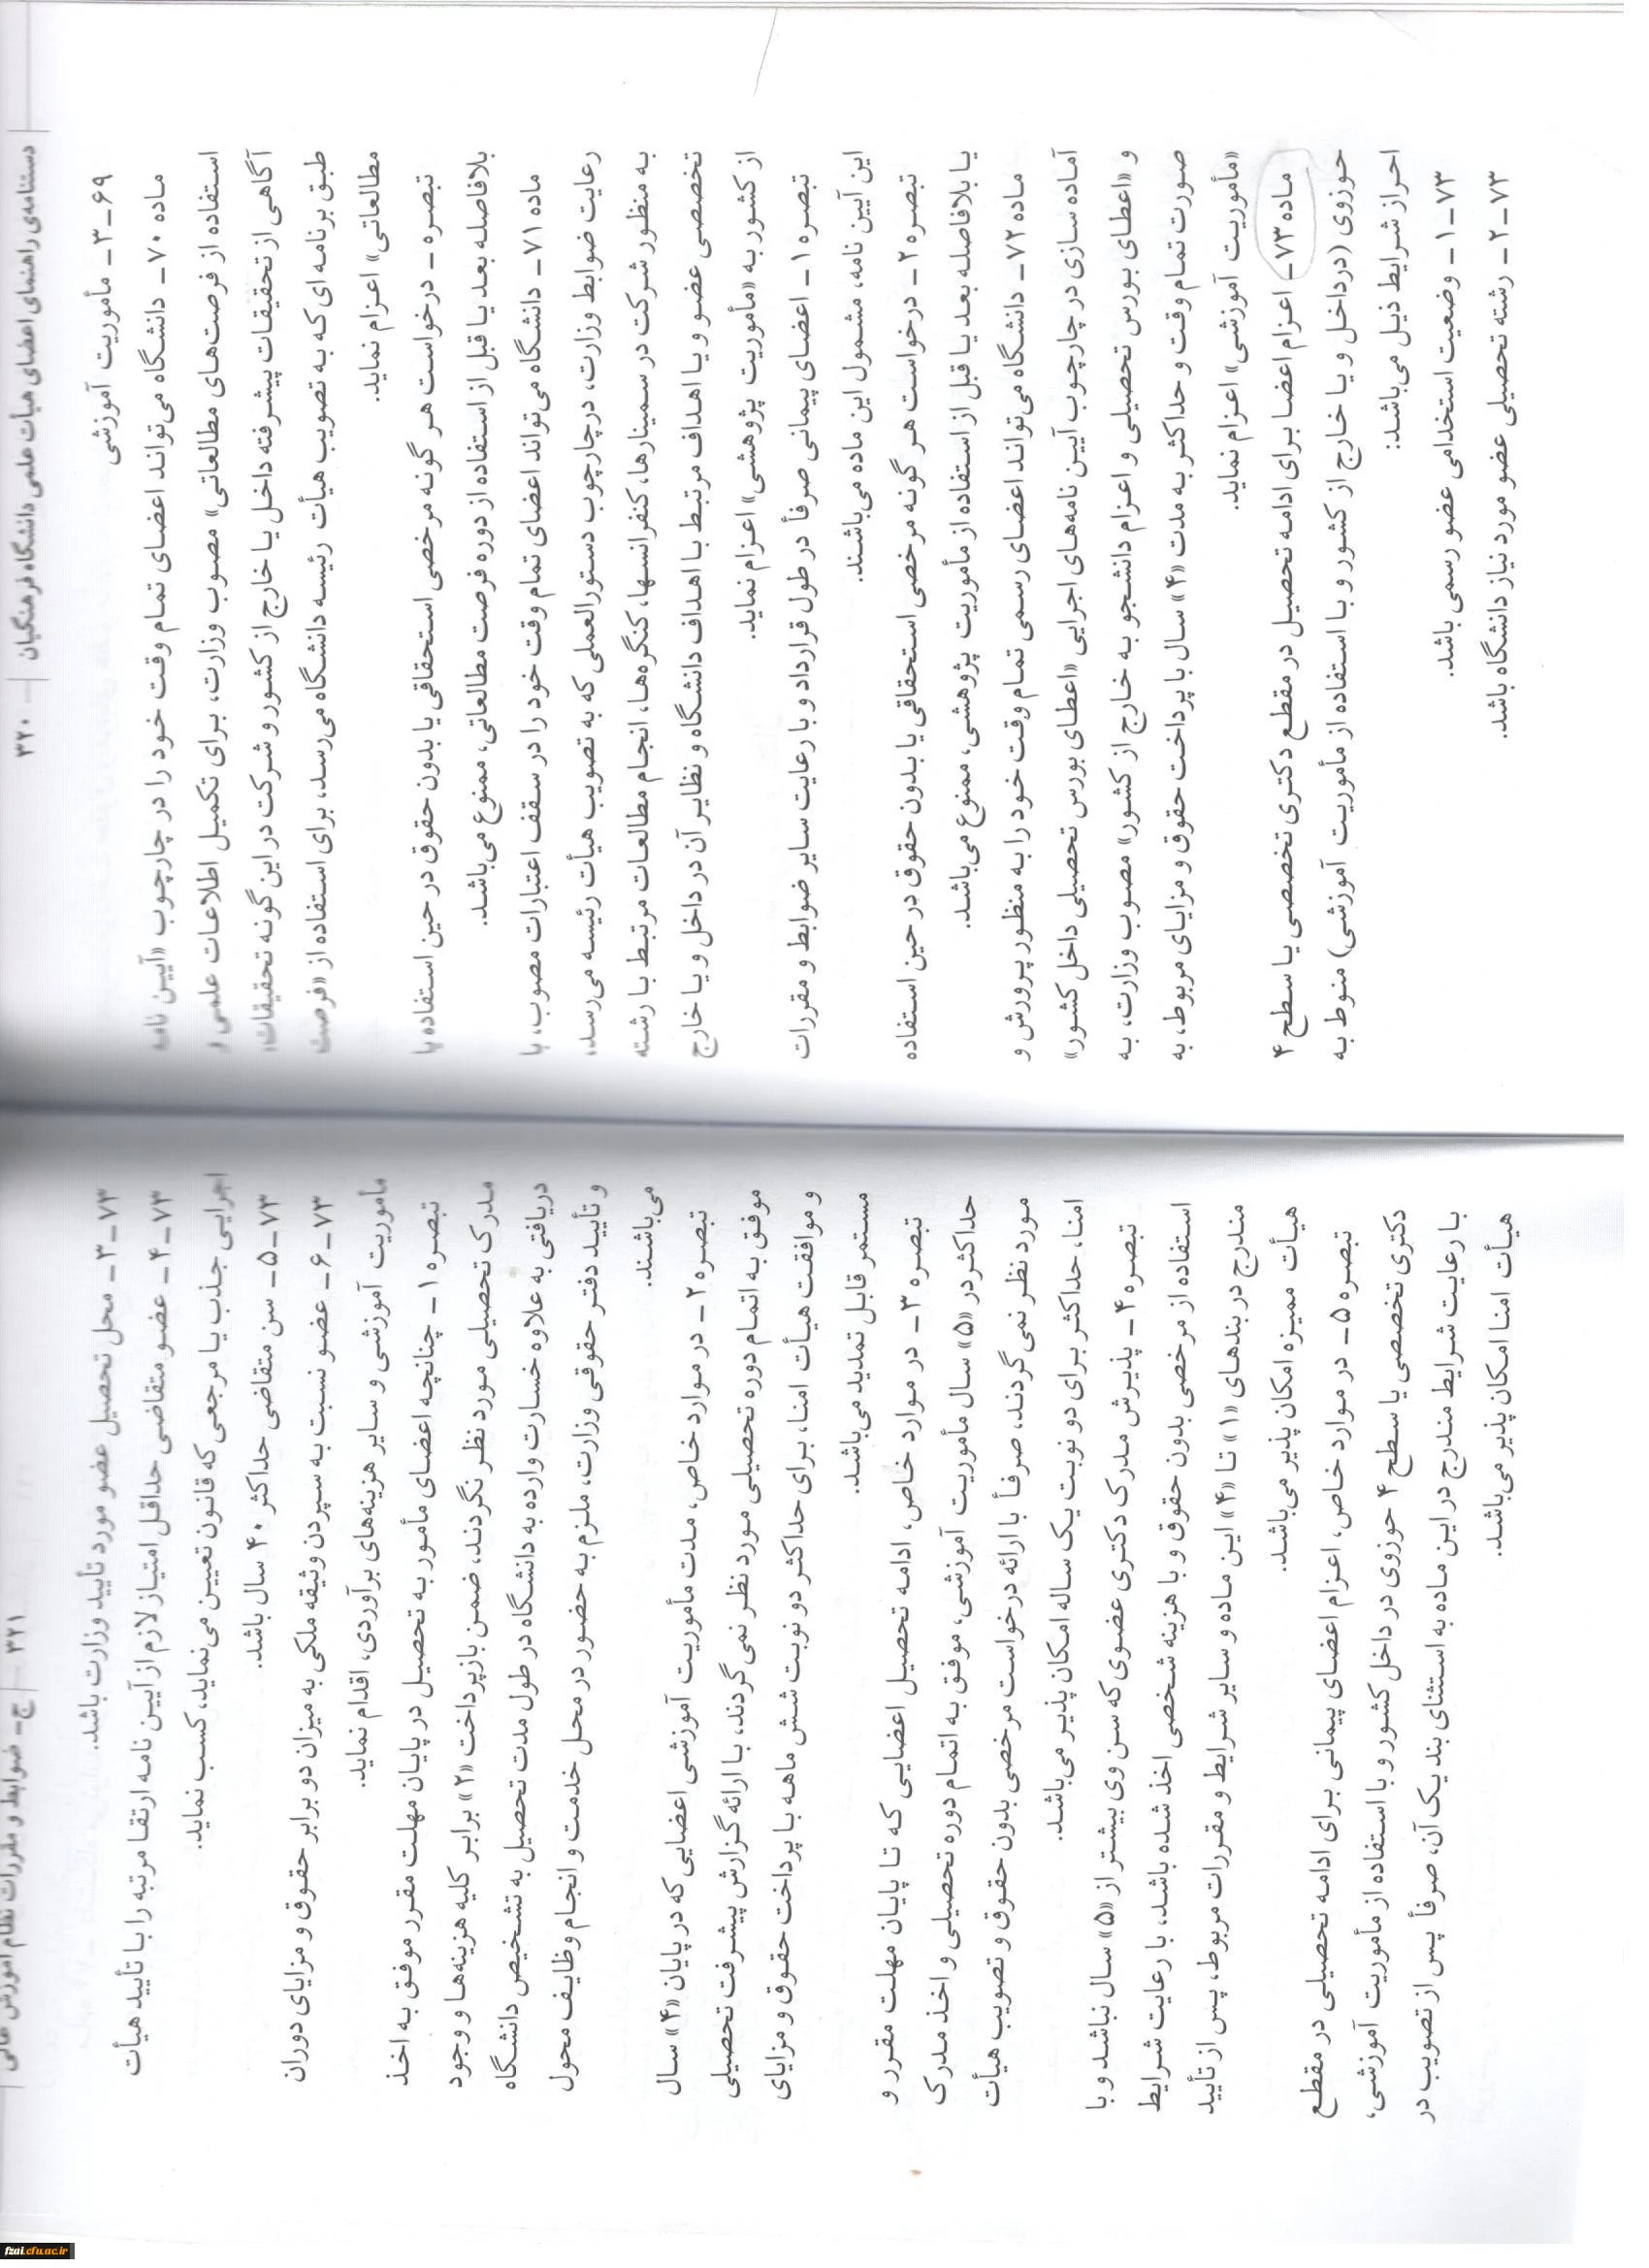 ۳۲۰ دستنامه‌ی راهنمای اعضای هیأت علمی دانشگاه فرهنگیان
۶۹ـ۳ـ مأموریت آموزشی
ماده ۷۰ـ دانشگاه می‌تواند اعضای تمام وقت خود را در چارچوب «آیین نامه
استفاده از فرصت‌های مطالعاتی» مصوب وزارت، برای تکمیل اطلاعات علمی و
آگاهی از تحقیقات پیشرفته داخل یا خارج از کشور و شرکت در این گونه تحقیقات،
طبق برنامه ای که به تصویب هیأت رئیسه دانشگاه می‌رسد، برای استفاده از «فرصت
مطالعاتی» اعزام نماید.
تبصره ـ درخواست هر گونه مرخصی استحقاقی یا بدون حقوق در حین استفاده یا
بلافاصله بعد یا قبل از استفاده از دوره فرصت مطالعاتی، ممنوع می‌باشد.
ماده ۷۱ـ دانشگاه می‌تواند اعضای تمام وقت خود را در سقف اعتبارات مصوب، با
رعایت ضوابط وزارت، در چارچوب دستورالعملی که به تصویب هیأت رئیسه می‌رسد،
به منظور شرکت در سمینارها، کنفرانسها، کنگره‌ها، انجام مطالعات مرتبط با رشته
تخصصی عضو و یا اهداف مرتبط با اهداف دانشگاه و نظایر آن در داخل و یا خارج
از کشور به «مأموریت پژوهشی» اعزام نماید.
تبصره ۱ـ اعضای پیمانی صرفاً در طول قرارداد و با رعایت سایر ضوابط و مقررات
این آیین نامه، مشمول این ماده می‌باشند.
تبصره ۲ـ درخواست هر گونه مرخصی استحقاقی یا بدون حقوق در حین استفاده
یا بلافاصله بعد یا قبل از استفاده از مأموریت پژوهشی، ممنوع می‌باشد.
ماده ۷۲ـ دانشگاه می‌تواند اعضای رسمی تمام وقت خود را به منظور پرورش و
آماده سازی در چارچوب آیین نامه‌های اجرایی «اعطای بورس تحصیلی داخل کشور»
و «اعطای بورس تحصیلی و اعزام دانشجو به خارج از کشور» مصوب وزارت، به
صورت تمام وقت و حداکثر به مدت «۴» سال با پرداخت حقوق و مزایای مربوط، به
«مأموریت آموزشی» اعزام نماید.
ماده ۷۳ـ اعزام اعضا برای ادامه تحصیل در مقطع دکتری تخصصی یا سطح ۴
حوزوی (در داخل و یا خارج از کشور و با استفاده از مأموریت آموزشی) منوط به
احراز شرایط ذیل می‌باشد:
۷۳ـ۱ـ وضعیت استخدامی عضو رسمی باشد.
۷۳ـ۲ـ رشته تحصیلی عضو مورد نیاز دانشگاه باشد.
ج ـ ضوابط و مقررات نظام آموزش عالی ۳۲۱
۷۳ـ۳ـ محل تحصیل عضو مورد تأیید وزارت باشد.
۷۳ـ۴ـ عضو متقاضی حداقل امتیاز لازم از آیین نامه ارتقا مرتبه را با تأیید هیأت
اجرایی جذب یا مرجعی که قانون تعیین می‌نماید، کسب نماید.
۷۳ـ۵ـ سن متقاضی حداکثر ۴۰ سال باشد.
۷۳ـ۶ـ عضو نسبت به سپردن وثیقه ملکی به میزان دو برابر حقوق و مزایای دوران
مأموریت آموزشی و سایر هزینه‌های برآوردی، اقدام نماید.
تبصره ۱ـ چنانچه اعضای مأمور به تحصیل در پایان مهلت مقرر موفق به اخذ
مدرک تحصیلی مورد نظر نگردند، ضمن بازپرداخت «۲» برابر کلیه هزینه‌ها و وجوه
دریافتی به علاوه خسارت وارده به دانشگاه در طول مدت تحصیل به تشخیص دانشگاه
و تأیید دفتر حقوقی وزارت، ملزم به حضور در محل خدمت و انجام وظایف محول
می‌باشند.
تبصره ۲ـ در موارد خاص، مدت مأموریت آموزشی اعضایی که در پایان «۴» سال
موفق به اتمام دوره تحصیلی مورد نظر نمی گردند، با ارائه گزارش پیشرفت تحصیلی
و موافقت هیأت امنا، برای حداکثر دو نوبت شش ماهه با پرداخت حقوق و مزایای
مستمر قابل تمدید می‌باشد.
تبصره ۳ـ در موارد خاص، ادامه تحصیل اعضایی که تا پایان مهلت مقرر و
حداکثر در «۵» سال مأموریت آموزشی، موفق به اتمام دوره تحصیلی و اخذ مدرک
مورد نظر نمی گردند، صرفاً با ارائه درخواست مرخصی بدون حقوق و تصویب هیأت
امنا، حداکثر برای دو نوبت یک ساله امکان پذیر می‌باشد.
تبصره ۴ـ پذیرش مدرک دکتری عضوی که سن وی بیشتر از «۵» سال نباشد و با
استفاده از مرخصی بدون حقوق و با هزینه شخصی اخذ شده باشد، با رعایت شرایط
مندرج در بندهای «۱» تا «۴» این ماده و سایر شرایط و مقررات مربوط، پس از تأیید
هیأت ممیزه امکان پذیر می‌باشد.
تبصره ۵ـ در موارد خاص، اعزام اعضای پیمانی برای ادامه تحصیلی در مقطع
دکتری تخصصی یا سطح ۴ حوزوی در داخل کشور و با استفاده از مأموریت آموزشی،
با رعایت شرایط مندرج در این ماده به استثنای بند یک آن، صرفاً پس از تصویب در
هیأت امنا امکان پذیر می‌باشد.
fzai.cfu.ac.ir